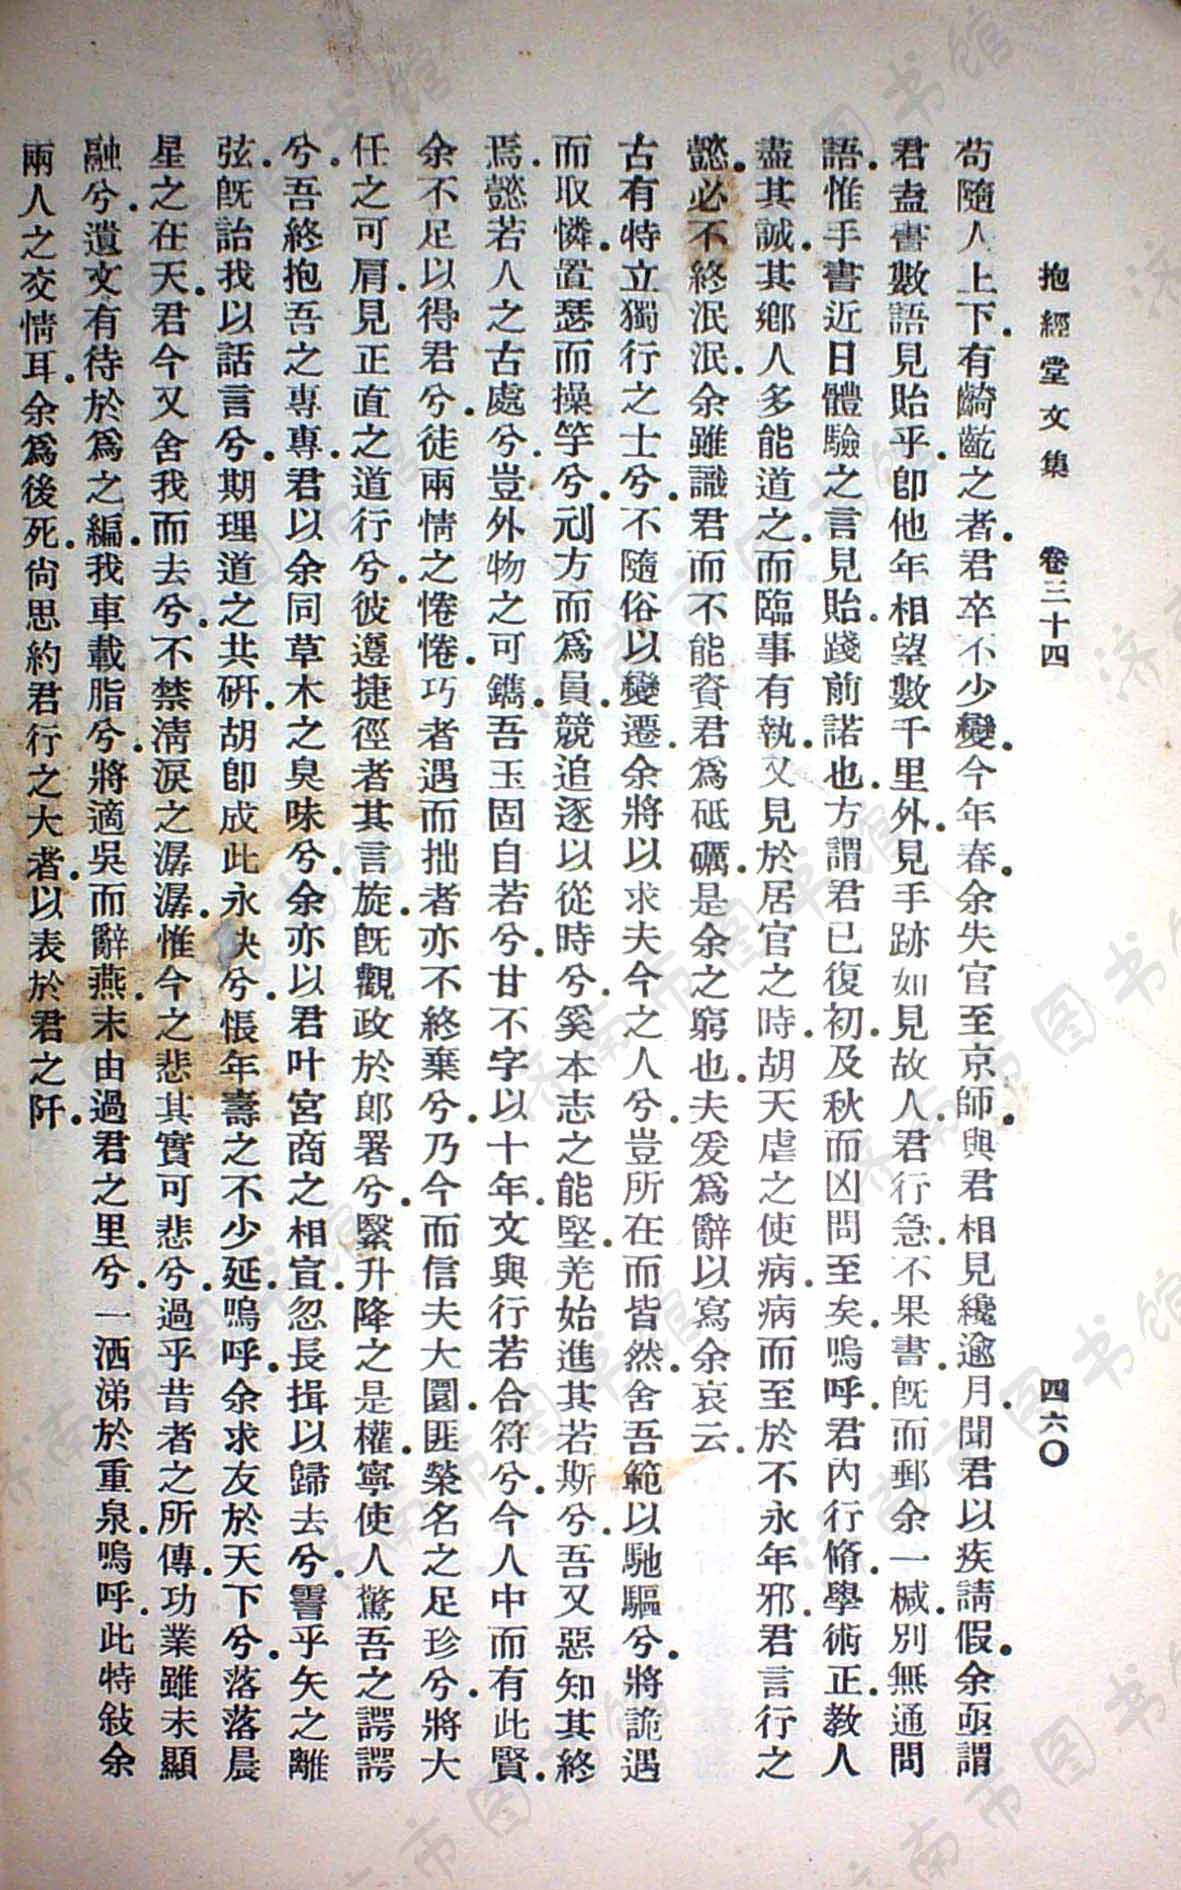 抱經堂文集　卷三十四　四六〇
苟隨人上下。有齮齕之者。君卒不少變。今年春。余失官至京師。與君相見纔逾月。聞君以疾請假。余亟謂
君盍書數語見貽乎。卽他年相望數千里外。見手跡如見故人。君行急。不果書。旣而郵余一椷。別無通問
語。惟手書近日體驗之言見貽。踐前諾也。方謂君已復初。及秋而凶問至矣。嗚呼。君內行脩。學術正。教人
盡其誠。其鄉人多能道之。而臨事有執。又見於居官之時。胡天虐之使病。病而至於不永年邪。君言行之
懿。必不終泯泯。余雖識君而不能資君爲砥礪。是余之窮也。夫爰爲辭以寫余哀云。
古有特立獨行之士兮。不隨俗以變遷。余將以求夫今之人兮。豈所在而皆然。舍吾範以馳驅兮。將詭遇
而取憐。置瑟而操竽兮。刓方而爲員。競追逐以從時兮。奚本志之能堅。羌始進其若斯兮。吾又惡知其終
焉。懿若人之古處兮。豈外物之可鐫。吾玉固自若兮。甘不字以十年。文與行若合符兮。今人中而有此賢。
余不足以得君兮。徒兩情之惓惓。巧者遇而拙者亦不終棄兮。乃今而信夫大圜。匪榮名之足珍兮。將大
任之可肩。見正直之道行兮。彼遵捷徑者其言旋。旣觀政於郞署兮。繄升降之是權。寧使人驚吾之諤諤
兮。吾終抱吾之專專。君以余同草木之臭味兮。余亦以君叶宮商之相宣。忽長揖以歸去兮。霅乎矢之離
弦。旣詒我以話言兮。期理道之共硏。胡卽成此永訣兮。悵年壽之不少延。嗚呼。余求友於天下兮。落落晨
星之在天。君今又舍我而去兮。不禁淸淚之潺潺。惟今之悲其實可悲兮。過乎昔者之所傳。功業雖未顯
融兮。遺文有待於爲之編。我車載脂兮。將適吳而辭燕。末由過君之里兮。一洒涕於重泉。嗚呼。此特敍余
兩人之交情耳。余爲後死。尙思約君行之大者。以表於君之阡。